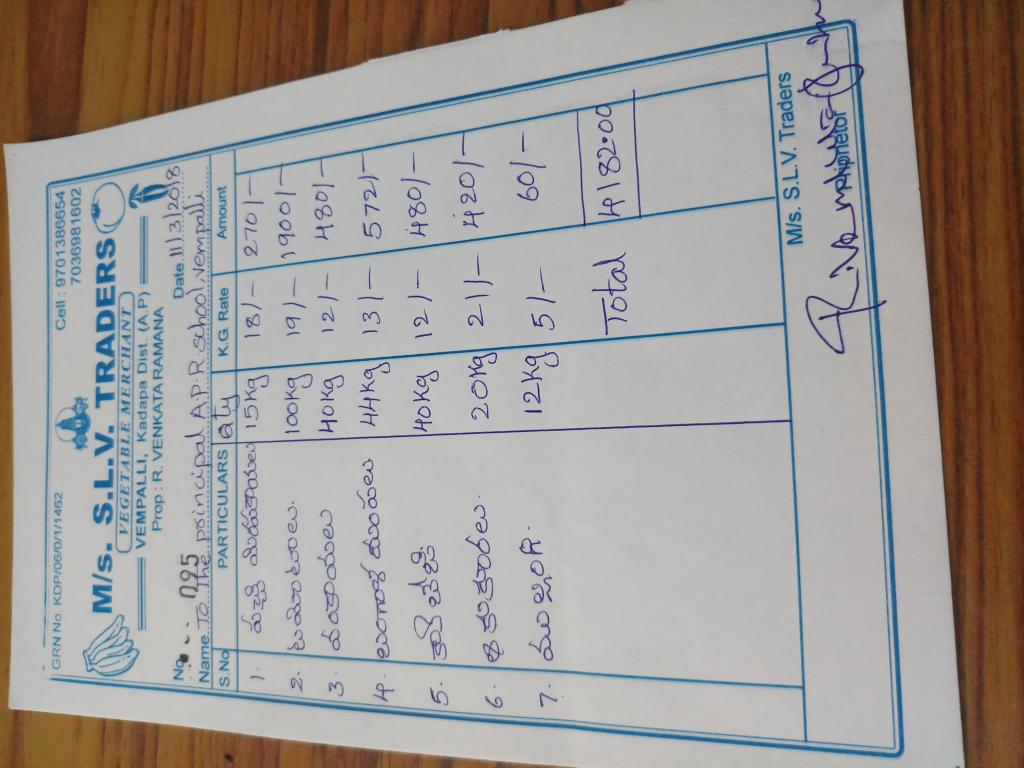 GRN No KDP/06/01/1462 Cell : 9701386654
7036981602
M/s. S.L.V. TRADERS
VEGETABLE MERCHANT
VEMPALLI, Kadapa Dist. (A.P)
Prop : R. VENKATARAMANA
No. 025 Date 11/3/2018
Name To The principal A.P.R. School, Vempalli
S.No PARTICULARS Qty K.G. Rate Amount
1. పచ్చి మిరపకాయలు 15kg 18/- 270/-
2. టమోటాలు. 100kg 19/- 1900/-
3. వంకాయలు 40kg 12/- 480/-
4. 44kg 13/- 572/-
5. 40kg 12/- 480/-
6. 20kg 21/- 420/-
7. ముల్లంగి. 12kg 5/- 60/-
Total 4182.00
M/s. S.L.V. Traders